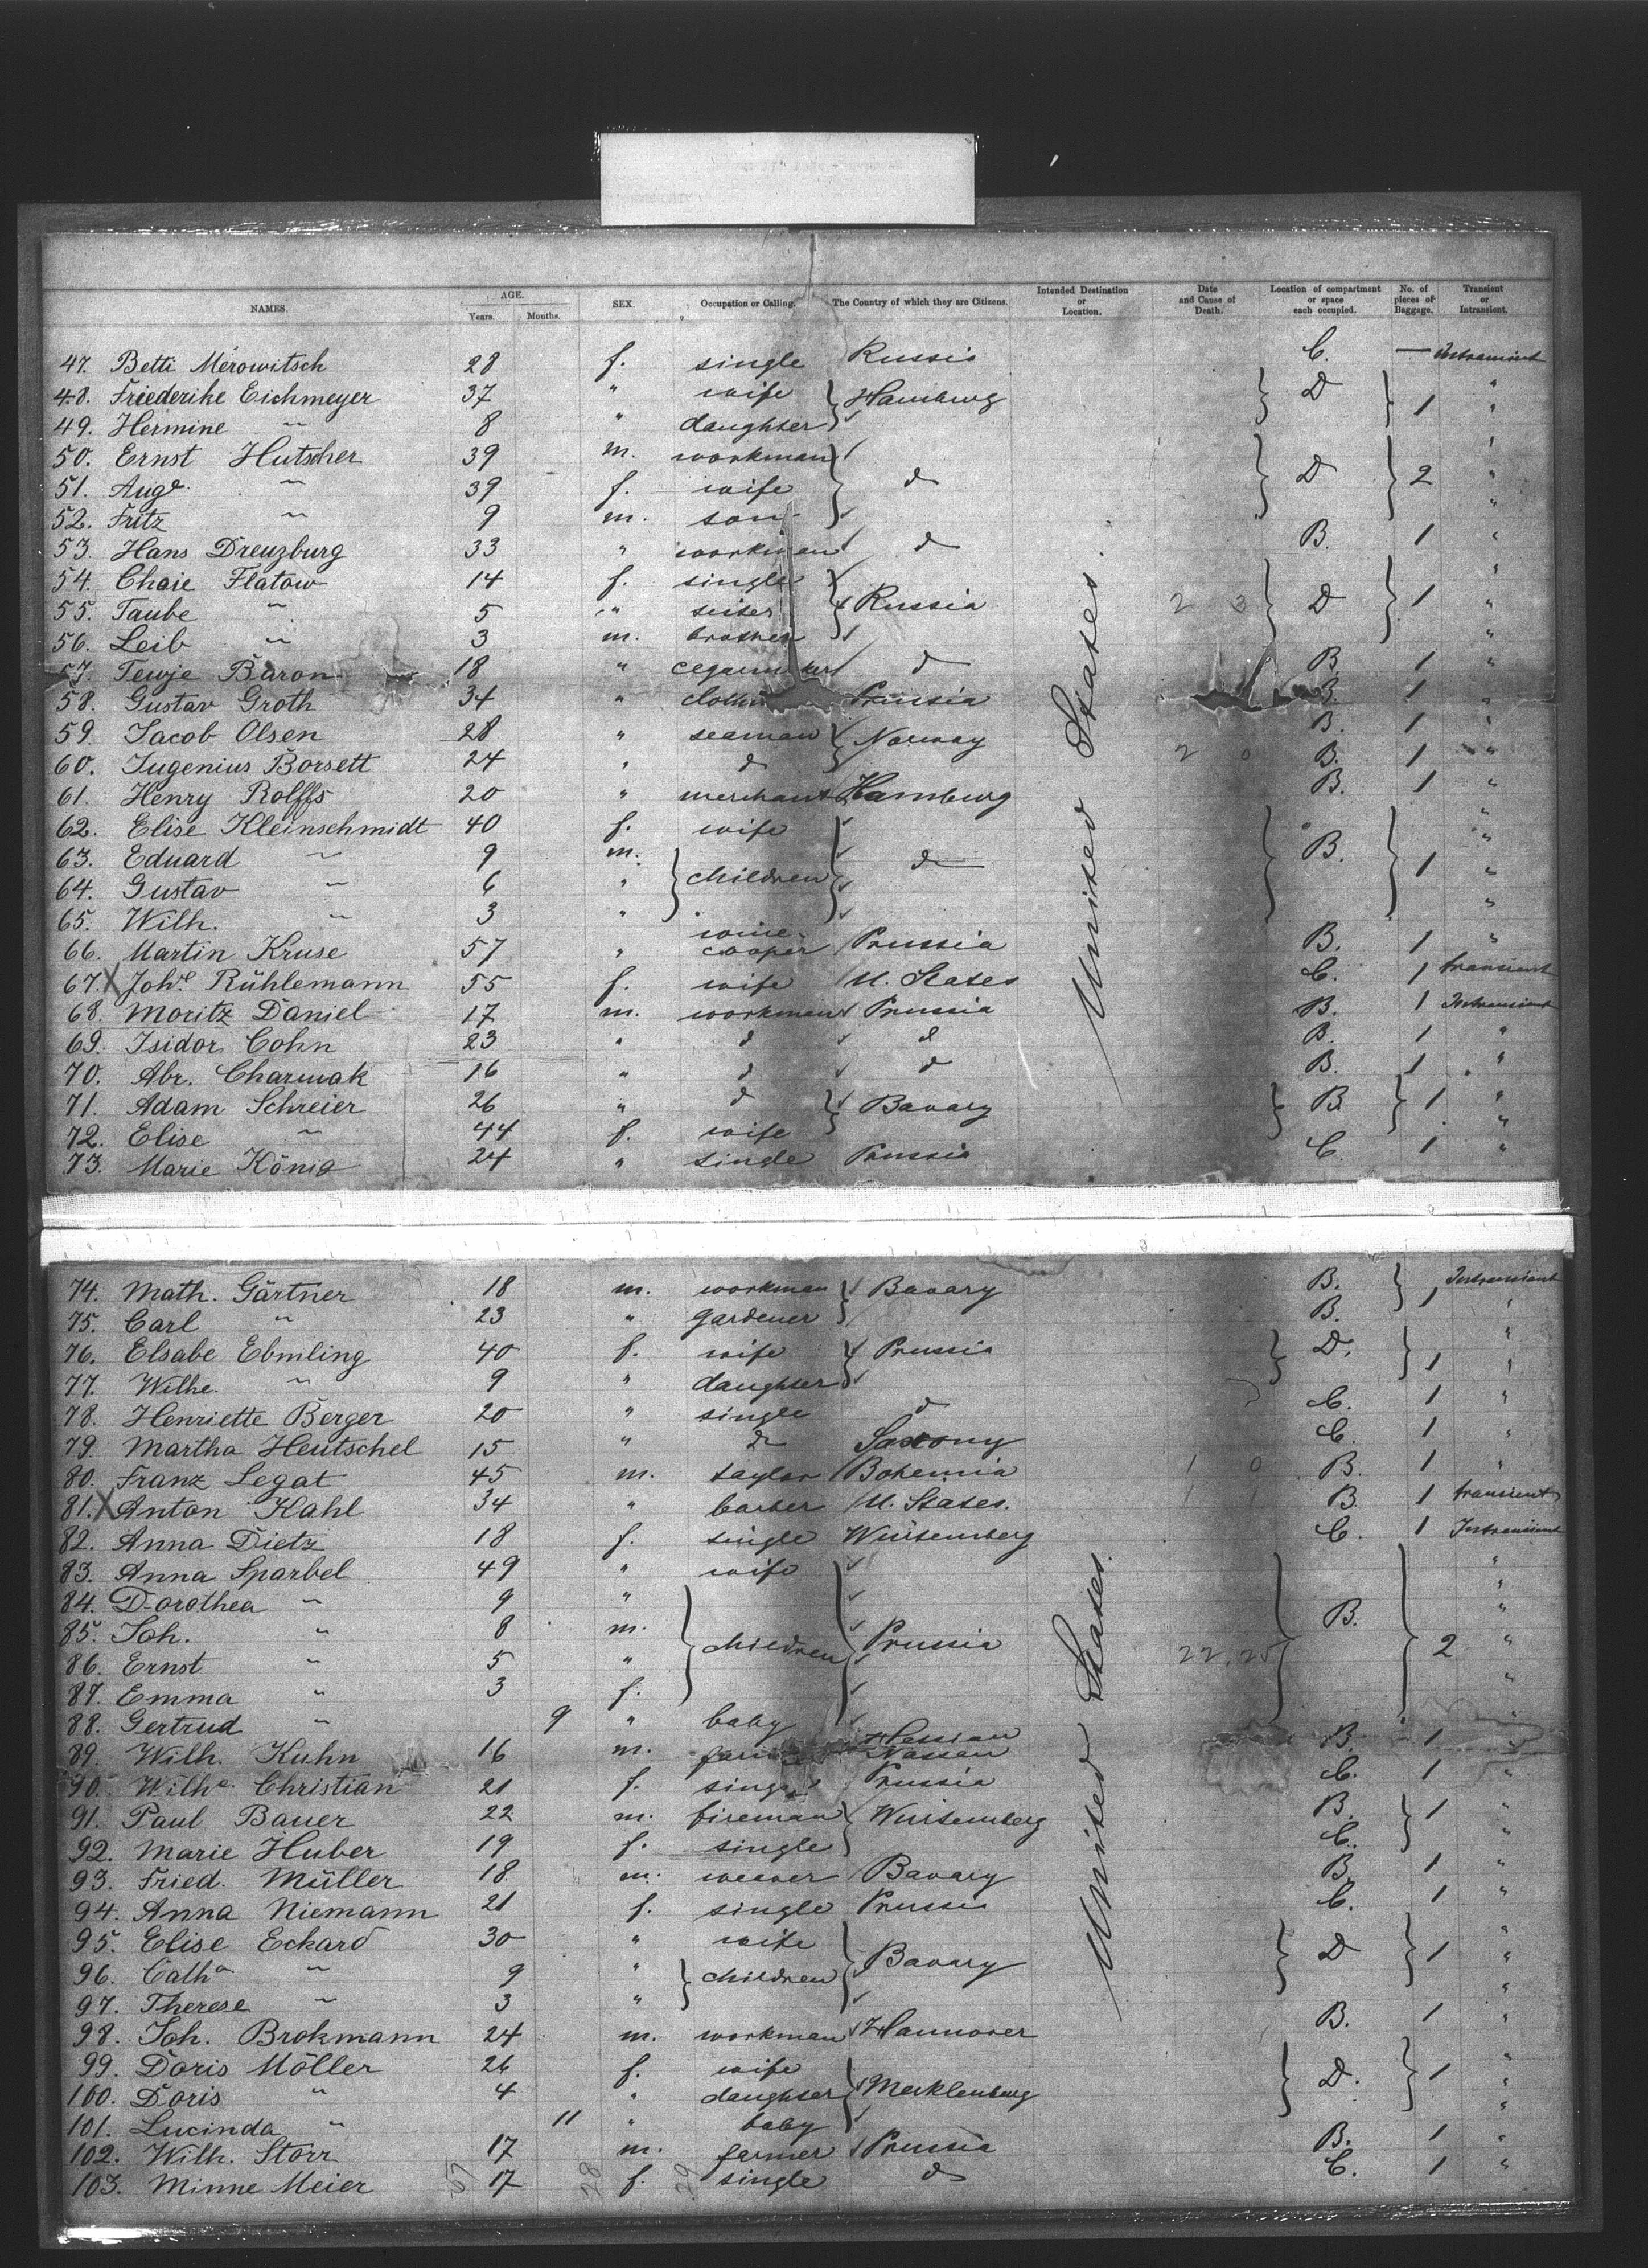 NAMES. AGE. Years. Months. SEX. Occupation or Calling. The Country of which they are Citizens. Intended Destination or Location. Date and Cause of Death. Location of compartment or space each occupied. No. of pieces of Baggage. Transient or Intransient.
47. Betti Merowitsch 28 f. single Russia C. — Intransient
48. Friederike Eichmeyer 37 " wife Hamburg D 1 "
49. Hermine " 8 " daughter "
50. Ernst Hutscher 39 m. workman "
51. Auge. " 39 f. wife d D 2 "
52. Fritz " 9 m. son "
53. Hans Dreuzburg 33 " workman d B. 1 "
54. Chaie Flatow 14 f. single "
55. Taube " 5 " sister Russia 2 3 D 1 "
56. Leib " 3 m. brother "
57. Tewje Baron 18 " d B 1 "
58. Gustav Groth 34 " Prussia B. 1 "
59. Jacob Olsen 28 " seaman Norway B. 1 "
60. Iugenius Borsett 24 " d 2 0 B. 1 "
61. Henry Rolffs 20 " merchant Hamburg B. 1 "
62. Elise Kleinschmidt 40 f. wife "
63. Eduard " 9 m. children d B. 1 "
64. Gustav " 6 " "
65. Wilh. " 3 " "
66. Martin Kruse 57 " wine-cooper Prussia B. 1 "
67. X Johe. Rühlemann 55 f. wife U. States C. 1 transient
68. Moritz Daniel 17 m. workman Prussia B. 1 Intransient
69. Isidor Cohn 23 " d d B. 1 "
70. Abr. Charmak 16 " d d B. 1 "
71. Adam Schreier 26 " d Bavary B 1 "
72. Elise " 44 f. wife "
73. Marie König 24 " single Prussia C. 1 "
United States.
74. Math. Gärtner 18 m. workman Bavary B. 1 Intransient
75. Carl " 23 " gardener B. "
76. Elsabe Ebmling 40 f. wife Prussia D. 1 "
77. Wilhe. " 9 " daughter "
78. Henriette Berger 20 " single d C. 1 "
79. Martha Heutschel 15 " d Saxony C. 1 "
80. Franz Legat 45 m. taylor Bohemia 1 0 B. 1 "
81. X Anton Kahl 34 " barber U. States. 1 1 B. 1 transient
82. Anna Dietz 18 f. single Würtemberg C. 1 Intransient
83. Anna Sparbel 49 " wife "
84. Dorothea " 9 " "
85. Joh. " 8 m. children Prussia B. 2 "
86. Ernst " 5 " 22, 25 "
87. Emma " 3 f. "
88. Gertrud " 9 " baby "
89. Wilh. Kuhn 16 m. Hessian Nassau B. 1 "
90. Wilhe. Christian 21 f. single Prussia C. 1 "
91. Paul Bauer 22 m. fireman Würtemberg B. 1 "
92. Marie Huber 19 f. single C. "
93. Fried. Müller 18 m. weaver Bavary B. 1 "
94. Anna Niemann 21 f. single Prussia C. 1 "
95. Elise Eckard 30 " wife Bavary D 1 "
96. Catha " 9 " children "
97. Therese " 3 " "
98. Joh. Brokmann 24 m. workman Hannover B. 1 "
99. Doris Möller 26 f. wife "
100. Doris " 4 " daughter Mecklenburg D. 1 "
101. Lucinda " 11 " baby "
102. Wilh. Storr 17 m. farmer Prussia B. 1 "
103. Minne Meier 17 f. single d C. 1 "
United States.
57 28 29